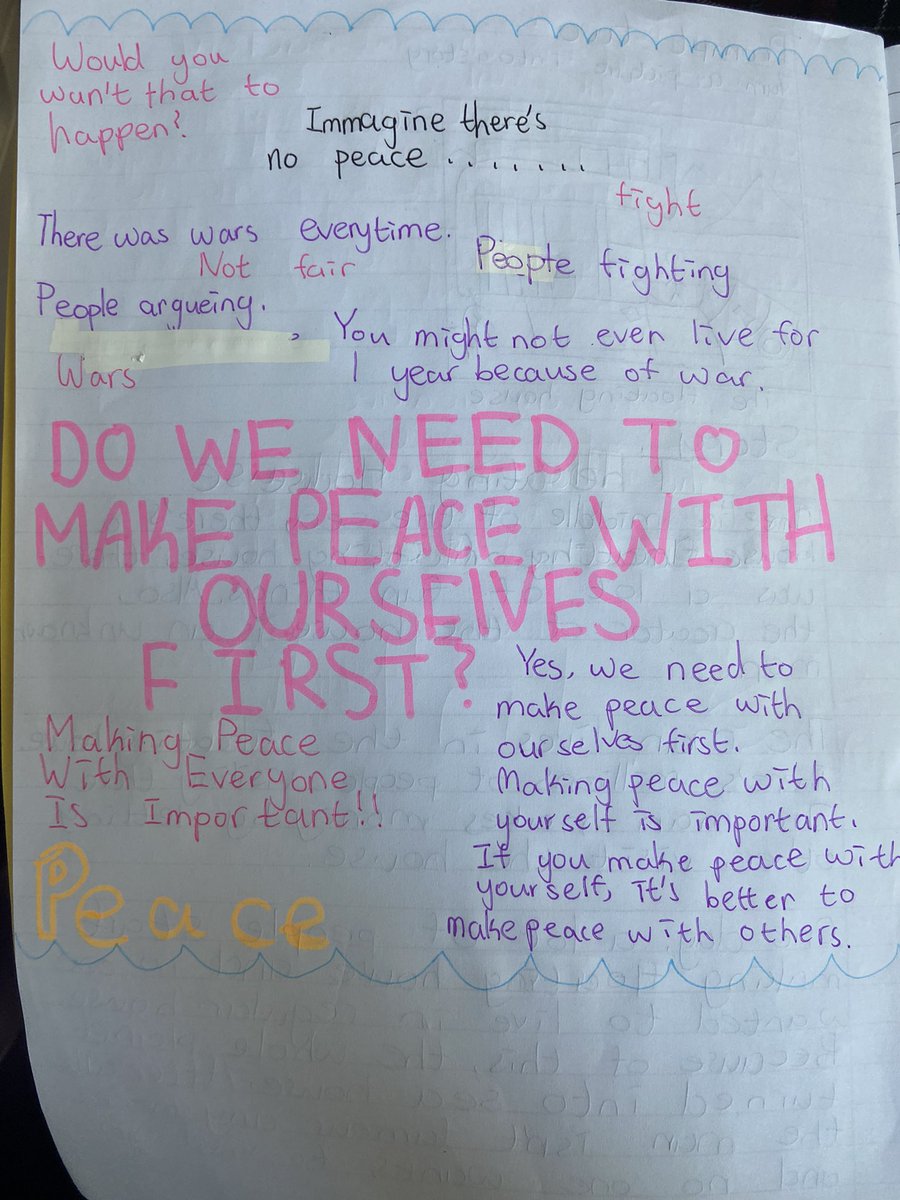 Would you
wun't that to
happen?
Immagine there's
no peace ........
fight
There was wars everytime.
Not fair
People fighting
People argueing.
You might not even live for
1 year because of war.
Wars
DO WE NEED TO
MAKE PEACE WITH
OURSELVES
FIRST?
Yes, we need to
make peace with
ourselves first.
Making peace with
yourself is important.
If you make peace with
yourself, it's better to
make peace with others.
Making Peace
With Everyone
Is Important!!
Peace